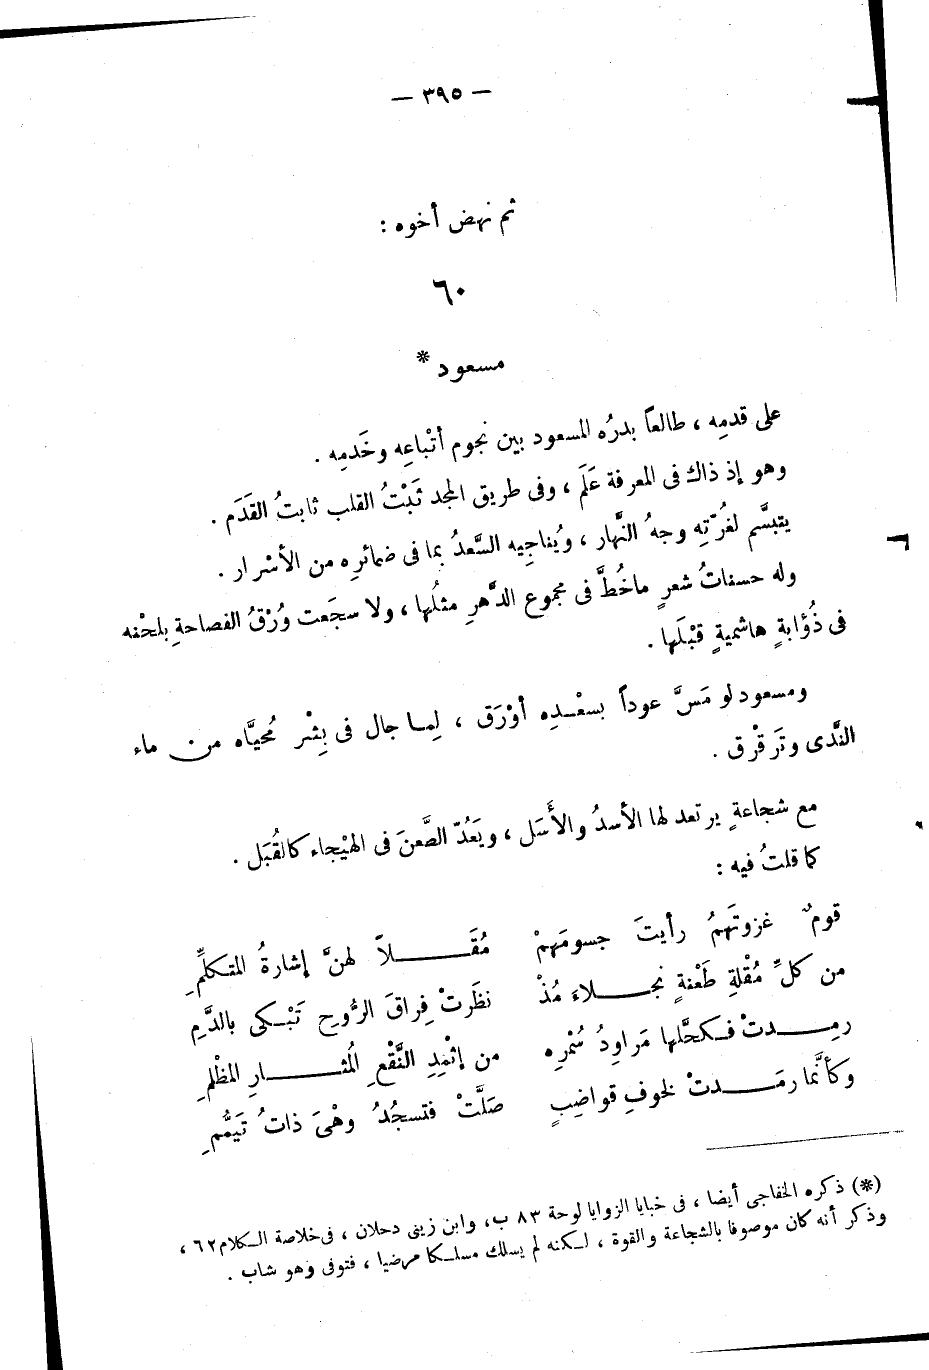 — ٣٩٥ —
ثم نهض أخوه :
٦٠
مسعود *
على قدمِه ، طالعاً بدرُه المسعود بين نجوم أتْباعِه وخَدمِه .
وهو إذ ذاك فى المعرفة عَلَم ، وفى طريق المجد ثَبْتُ القلب ثابتُ القَدَم .
يتبسَّم لغُرّتِه وجهُ النَّهار ، ويُناجِيه السَّعدُ بما فى ضمائرِه من الأسْرار .
وله حسناتُ شعرٍ ماخُطَّ فى مجموع الدَّهرِ مثلُها ، ولا سجَعت وُرْقُ الفصاحةِ بلحْنه
فى ذُؤابةٍ هاشميةٍ قبْلَها .
ومسعود لو مَسَّ عوداً بسعْده أوْرَق ، لِما جال فى بِشْر مُحيَّاه من ماء
النَّدى وتَرقرْق .
مع شجاعةٍ يرتعد لها الأسدُ والأَسَل ، ويَعُدّ الطَّعنَ فى الهيْجاء كالقُبَل .
كما قلتُ فيه :
قومٌ غزوتَهمُ رأيتَ جسومَهمْ مُقَلاً لهنَّ إشارةُ المتكلِّمِ
من كلِّ مُقْلةِ طَعْنةٍ نجلاءَ مُذْ نظَرتْ فِراقَ الرُّوحِ تَبْكى بالدَّمِ
رمِدتْ فكحَّلها مَراوِدُ سُمْرِه من إثْمِدِ النَّقْعِ المُثارِ المظْلمِ
وكأنَّما رمَدتْ لخوفِ قواضِبٍ صَلَّتْ فتسجُدُ وهْىَ ذاتُ تَيَمُّمِ
(*) ذكره الخفاجى أيضا ، فى خبايا الزوايا لوحة ٨٣ ب، وابن زينى دحلان ، فى خلاصة الكلام ٦٢ ،
وذكر أنه كان موصوفا بالشجاعة والقوة ، لكنه لم يسلك مسلكا مرضيا ، فتوفى وهو شاب .